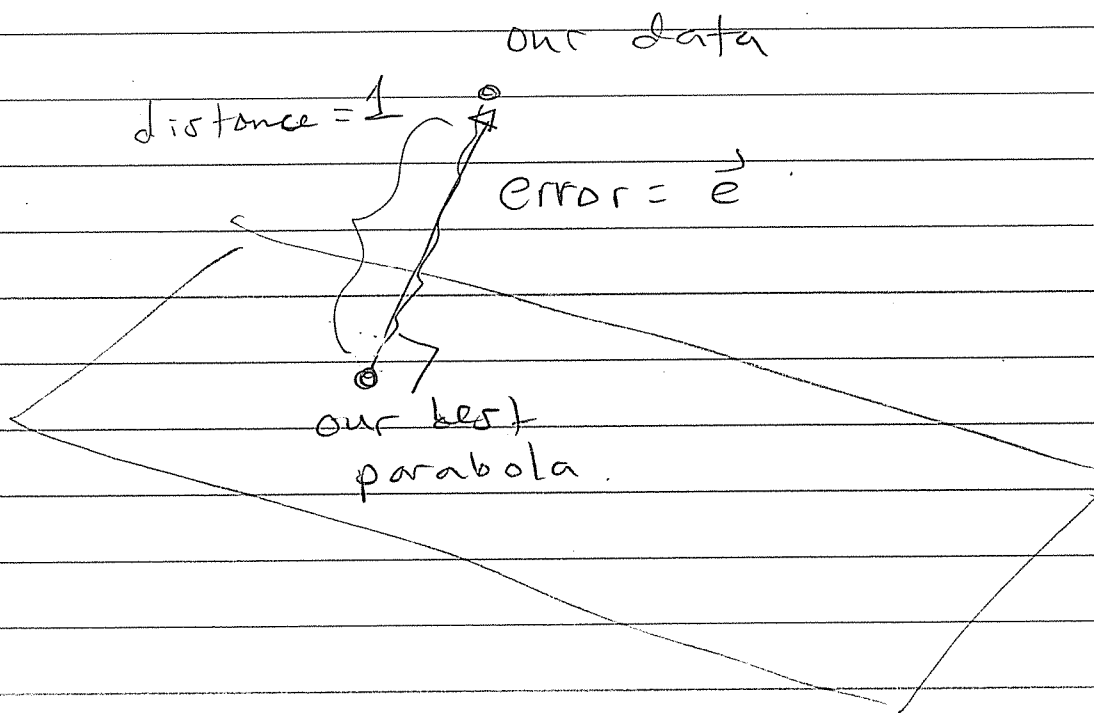 our data
distance = 1
error = e⃗
our best
parabola.